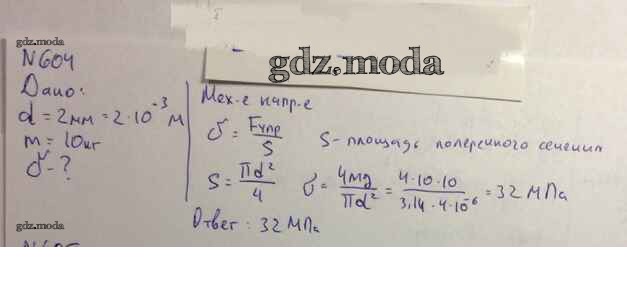 gdz.moda
N604
Дано:
d = 2мм = 2·10⁻³ м
m = 10кг
σ - ?
gdz.moda
Мех-е напр-е
σ = Fупр/S S - площадь поперечного сечения
S = πd²/4 σ = 4mg/πd² = 4·10·10/3,14·4·10⁻⁶ = 32 МПа
Ответ: 32 МПа
gdz.moda